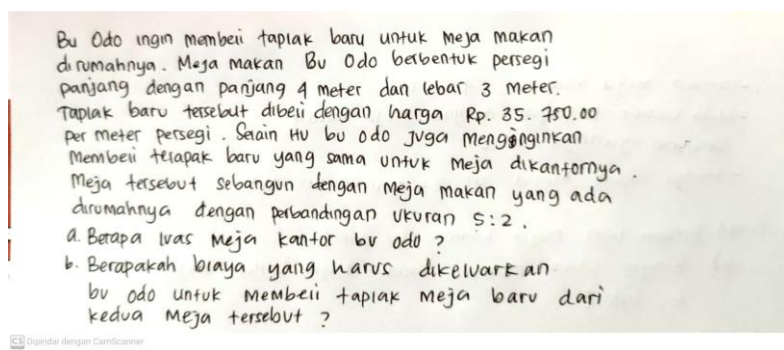 Bu Odo ingin membeli taplak baru untuk meja makan
di rumahnya. Meja makan Bu Odo berbentuk persegi
panjang dengan panjang 4 meter dan lebar 3 meter.
Taplak baru tersebut dibeli dengan harga Rp. 35.750.00
per meter persegi. Selain itu bu odo juga menginginkan
membeli telapak baru yang sama untuk meja dikantornya.
Meja tersebut sebangun dengan meja makan yang ada
dirumahnya dengan perbandingan ukuran 5:2.
a. Berapa luas meja kantor bu odo ?
b. Berapakah biaya yang harus dikeluarkan
bu odo untuk membeli taplak meja baru dari
kedua meja tersebut ?
CS Dipindai dengan CamScanner